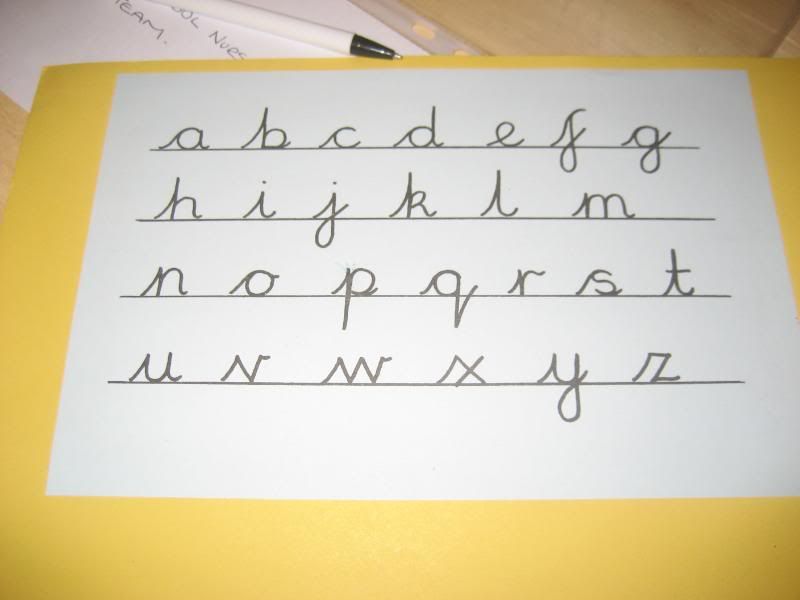 OOL NURS
TEAM.
a b c d e f g
h i j k l m
n o p q r s t
u v w x y z